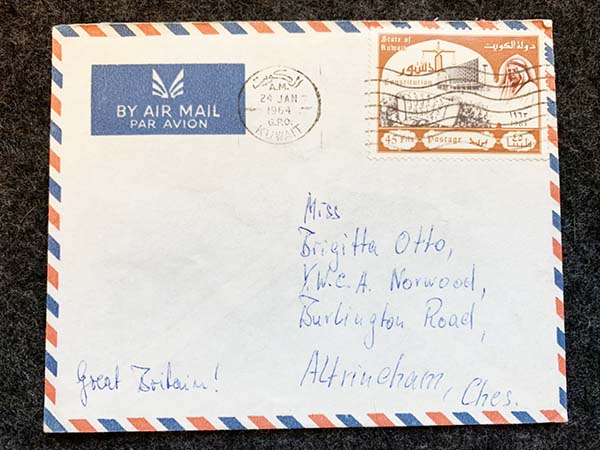 State of
Kuwait
دولة الكويت
الدستور
Constitution
١٩٦٣
45 Fils Postage بريد
الكويت
A.M.
24 JAN
1964
G.P.O.
KUWAIT
BY AIR MAIL
PAR AVION
Miss
Brigitta Otto,
Y.W.C.A. Norwood,
Burlington Road,
Altrincham, Ches.
Great Britain!